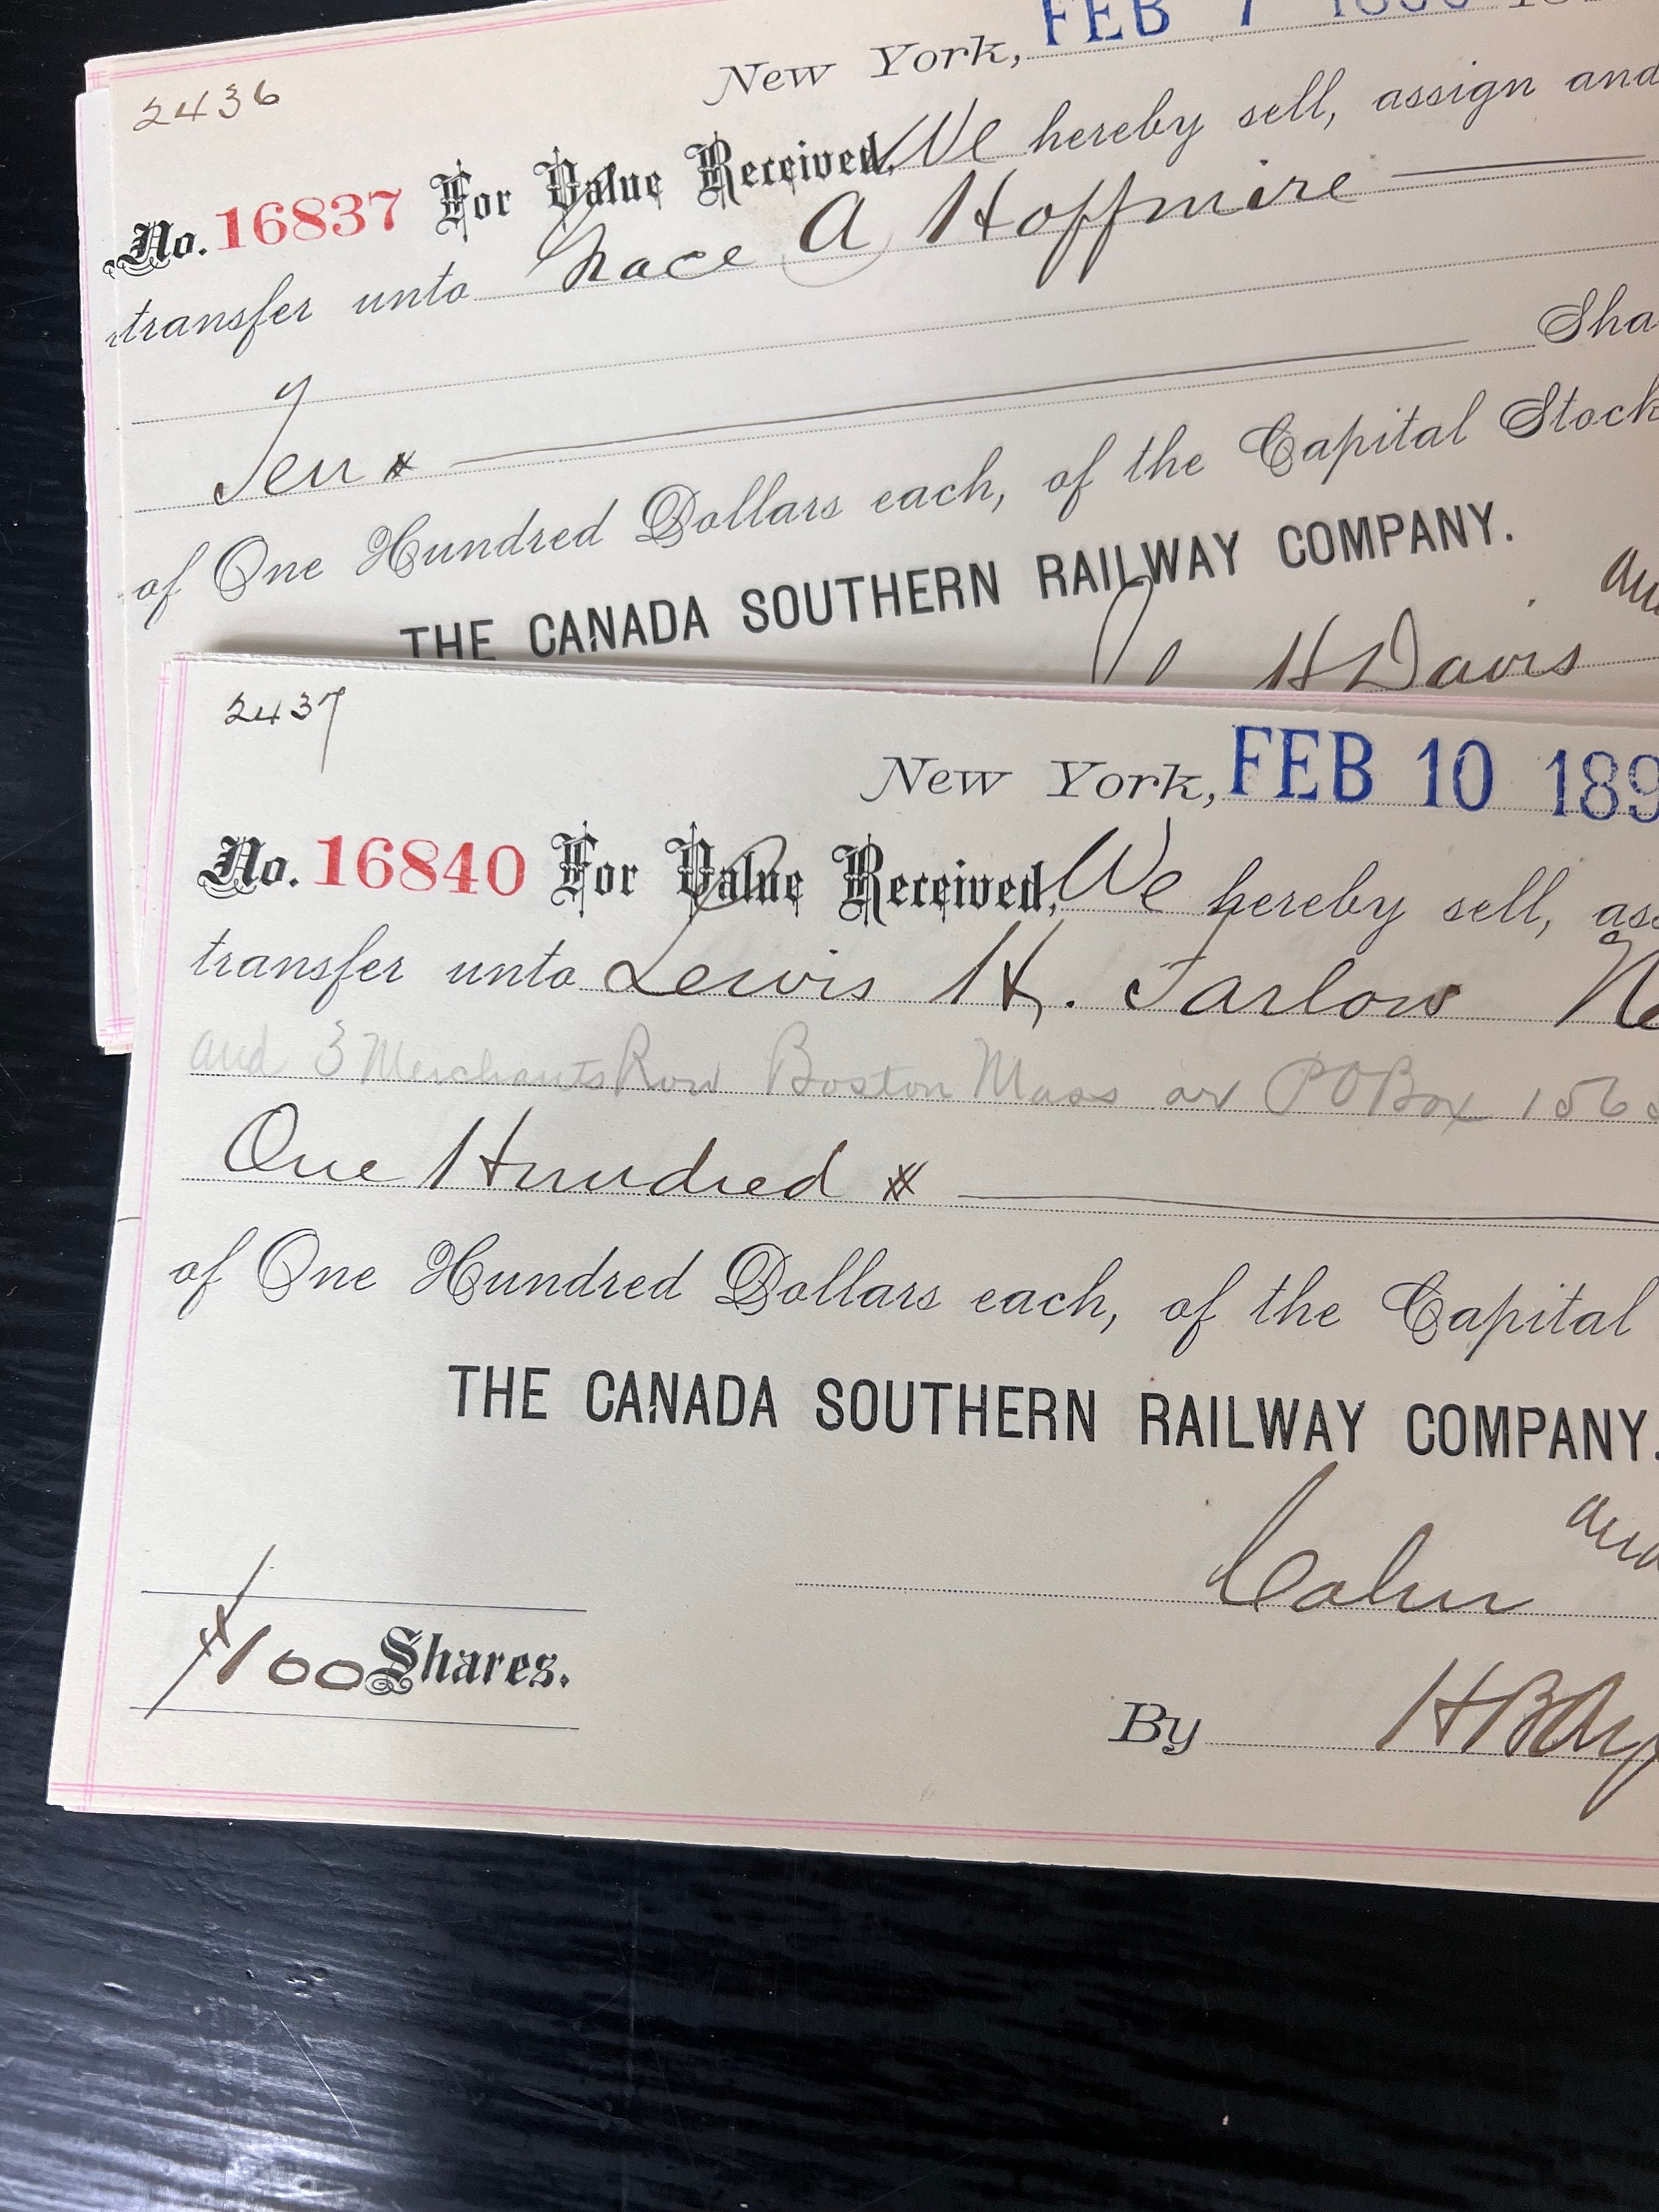 2436
New York, FEB 7
No. 16837 For Value Received, We hereby sell, assign and
transfer unto Grace A Hoffmire
Sha
Ten
of One Hundred Dollars each, of the Capital Stock
THE CANADA SOUTHERN RAILWAY COMPANY.
H Davis
2437
New York, FEB 10 189
No. 16840 For Value Received, We hereby sell, ass
transfer unto Lewis H. Farlow
and 3 Merchants Row Boston Mass or P O Box 156
One Hundred
of One Hundred Dollars each, of the Capital
THE CANADA SOUTHERN RAILWAY COMPANY.
and
100 Shares.
By